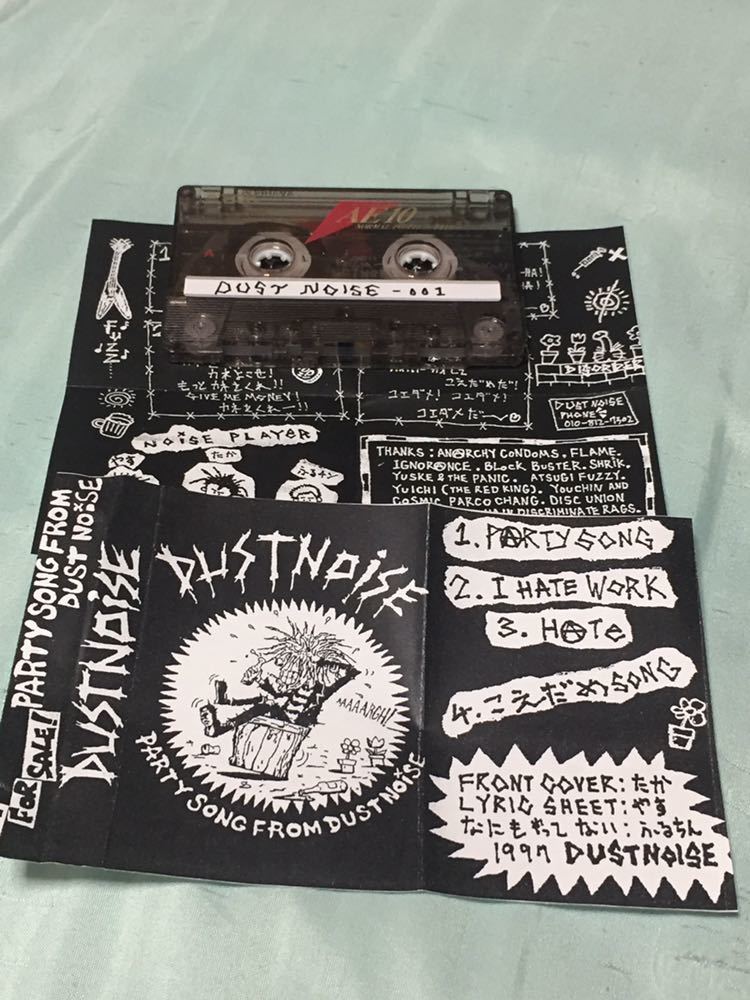 AE 10
DUST NOISE - 001
HA!
HA!
DISORDER
カネよこせ!
もっとカネくれ!!
GIVE ME MONEY!
カネくれー!!
こえだめだ!
コエダメ! コエダメ!
コエダメだ〜
DUST NOISE
PHONE
010-812-7302
NOISE PLAYER
やす
たか
ふるチン
THANKS : ANARCHY CONDOMS. FLAME.
IGNORANCE. BLOCK BUSTER. SHRIK.
YUSKE & THE PANIC. ATSUGI FUZZY.
YUICHI (THE RED KING). YOUCHIN AND
COSMIC PARCO CHANG. DISC UNION
IN DISCRIMINATE RAGS.
FOR SALE!
PARTY SONG FROM
DUST NOISE
DUSTNOISE
DUSTNOISE
AAAAARGH!
PARTY SONG FROM DUST NOISE
1. PARTY SONG
2. I HATE WORK
3. HATE
4. こえだめ SONG
FRONT COVER : たか
LYRIC SHEET : やす
なにもやってない : ふるちん
1997 DUSTNOISE